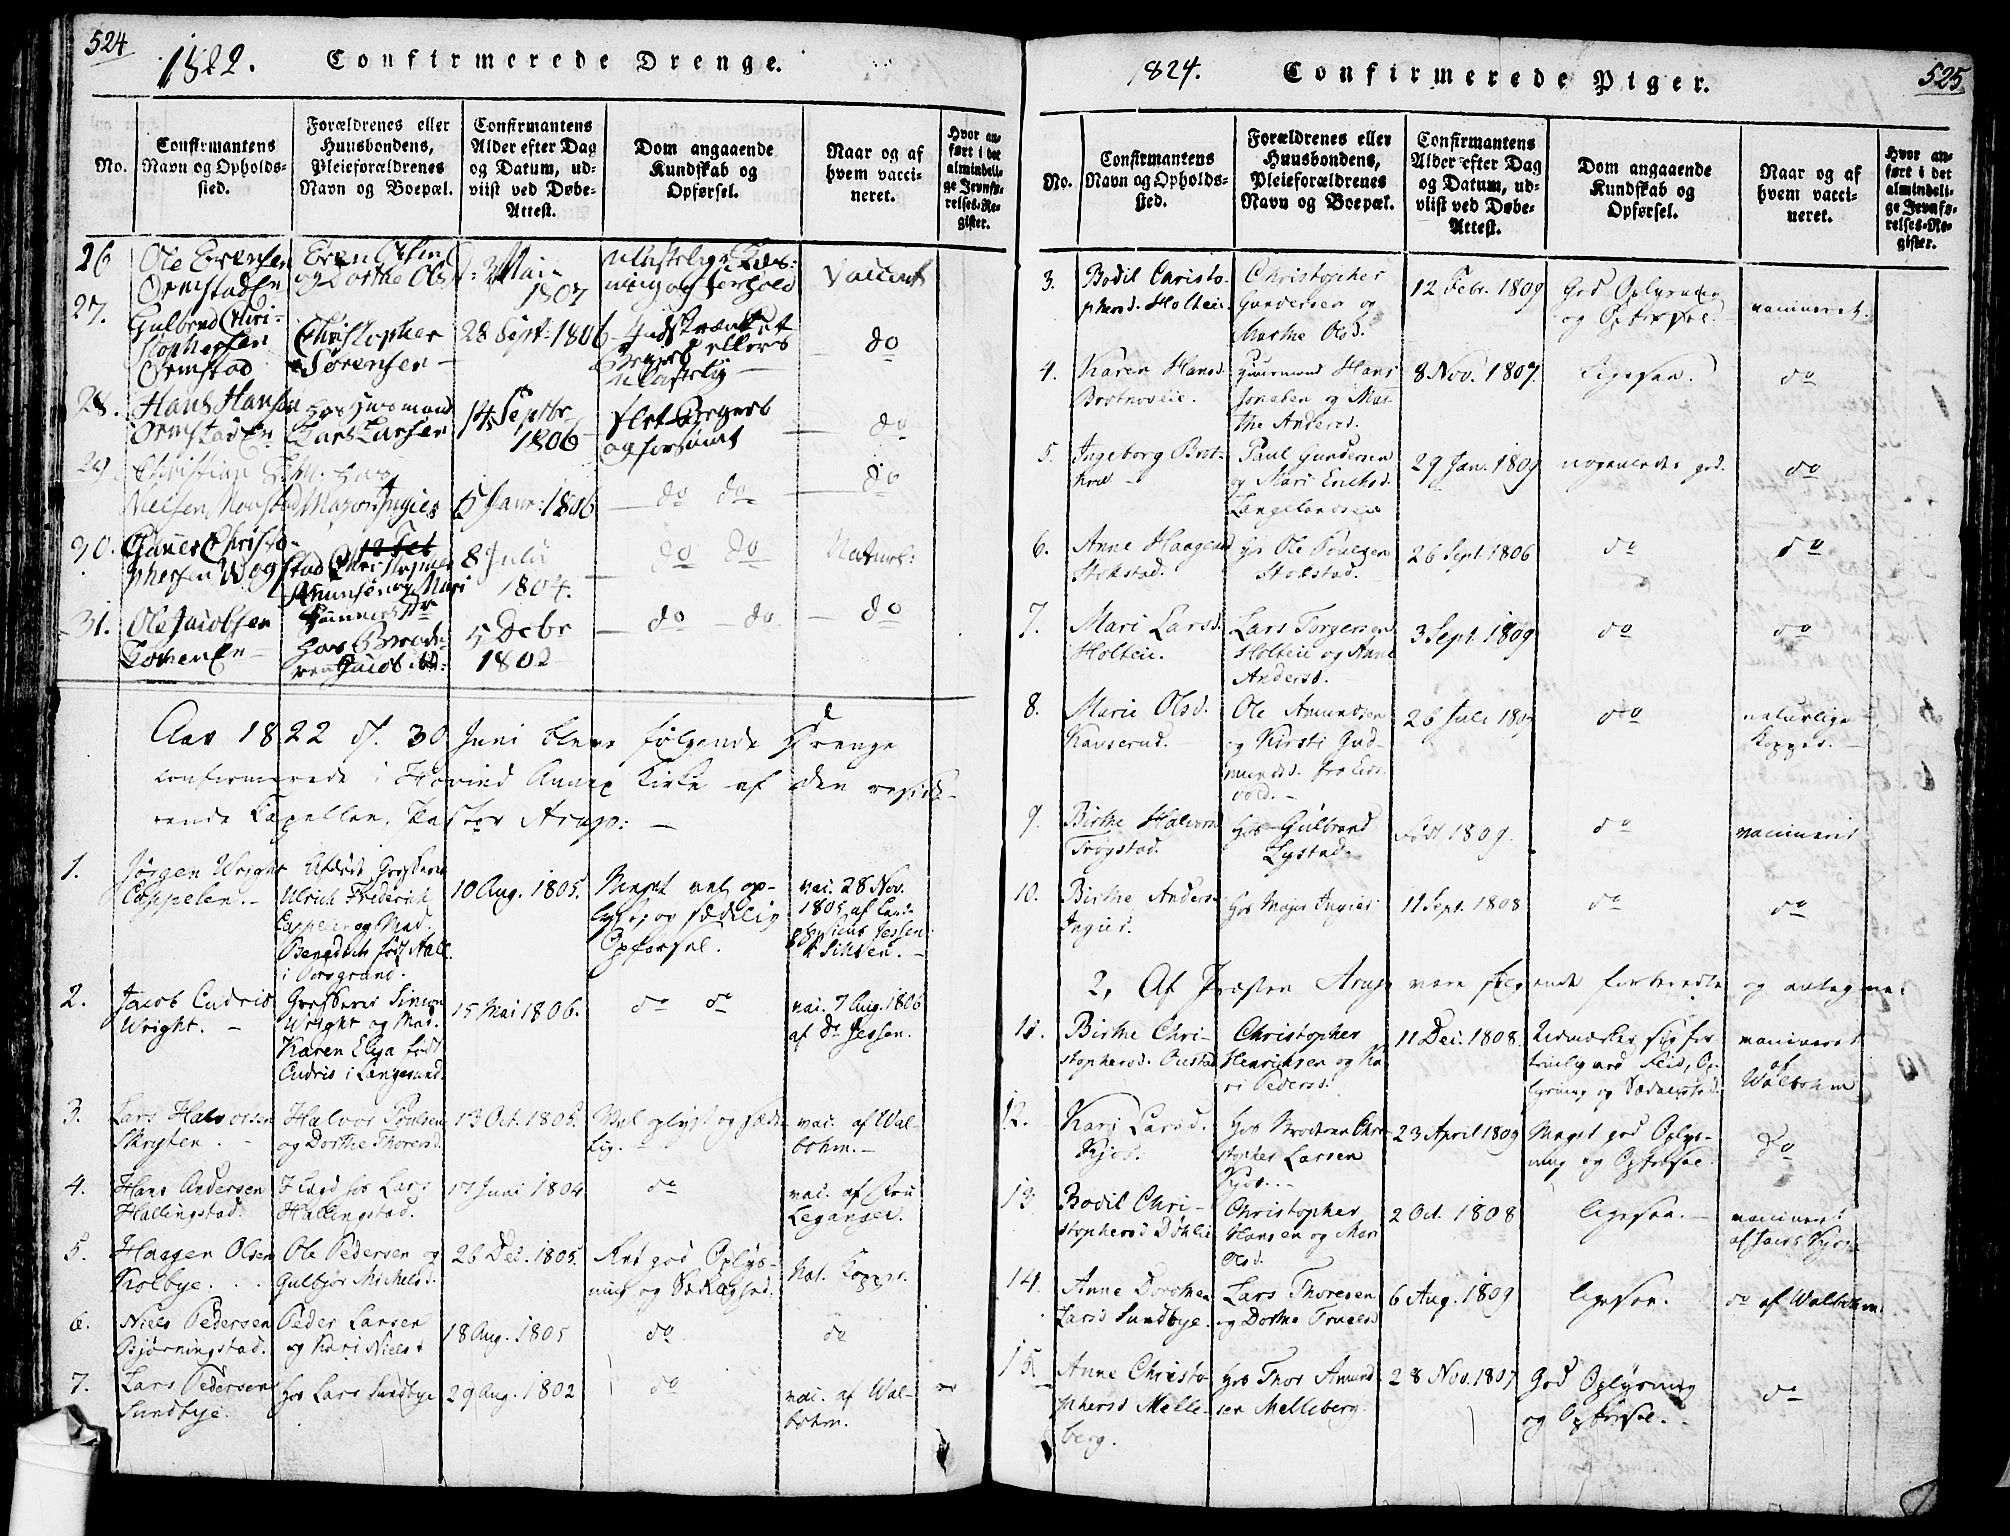 524
1822.
Confirmerede Drenge.
No.
Confirmantens
Navn og Opholds-
sted.
Forældrenes eller
Huusbondens,
Pleieforældrenes
Navn og Boepæl.
Confirmantens
Alder efter Dag
og Datum, ud-
viist ved Døbe-
Attest.
Dom angaaende
Kundskab og
Opførsel.
Naar og af
hvem vacci-
neret.
Hvor an-
ført i det
almindeli-
ge Jevnfø-
relses-Re-
gister.
26
Ole Evensen
Ormstaden
og Dorthe Olsd:
Maii
1807
Vaccinert
27.
Gulbrand Chri-
stophersen
Ormstad
Christopher
Sørensen
28 Sept: 1806
Indskrænket
Begreb ellers
do
28.
Hans Hansen
Ormstaden
hos Husmand
Lars Larsen
14 Septbr
1806
slet Begreb
og forsømt
do
29.
Christian
Nielsen
Major Ingier
5 Janr: 1806
do do
do
30.
Christo-
phersen
8 Julii
1804.
do do
Naturl:
31.
Ole Jacobsen
hos Brode-
ren Jacob
5 Debr
1802
do do
do
Aar 1822 d. 30 Juni bleve følgende Drenge
confirmerede i Hovind Annex Kirke af den reside-
rende Capellan, Pastor Arup: —
1.
Jørgen Wright
Cappelen. -
Afdøde
Ulrich Frederich
Cappelen og Mad.
Benedicte født Aall
i Porsgrund.
10 Aug. 1805.
Meget vel op-
lyst og sædelig
Opførsel.
vac. 28 Nov.
1805 af Land-
physicus Jessen
i Skien. -
2.
Jacob Cudrio
Wright. -
Simon
Wright og Mad.
Karen Elisa født
Cudrio i Langesund.
15 Mai 1806.
do do
vac. 7 Aug. 1806
af Dr Jessen.
3.
Lars Halvorsen
Skrysten. -
Halvor Poulsen
og Dorthe Thoresd.
13 Oct. 1805.
Vel oplyst og sæde-
lig.
vac. af Wal-
bohm. -
4.
Hans Andersen
Hallingstad.
hos Lars
Hallingstad.
17 Juni 1804
do
vac. af Fru
Leganger.
5.
Haagen Olsen
Kolbye.
Ole Pedersen og
Gulbjør Michelsd.
26 Dec. 1805.
Ret god Oplys-
ning og Sædelighed.
Nat. Kopper.
6.
Niels Pedersen
Bjørningstad.
Peder Larsen
og Kari Nielsd
18 Aug. 1805
do
do
7.
Lars Pedersen
Sundbye.
hos Lars Sundbye
29 Aug. 1802
do
vac. af Wal-
bohm.
1824.
Confirmerede Piger.
525
No.
Confirmantens
Navn og Opholds-
sted.
Forældrenes eller
Huusbondens,
Pleieforældrenes
Navn og Boepæl.
Confirmantens
Alder efter Dag
og Datum, ud-
viist ved Døbe-
Attest.
Dom angaaende
Kundskab og
Opførsel.
Naar og af
hvem vacci-
neret.
Hvor an-
ført i det
almindeli-
ge Jevnfø-
relses-Re-
gister.
3.
Bodil Christo-
phersd. Holteie.
Christopher
Gundersen og
Marthe Olsd.
12 Febr. 1809
God Oplysning
og Opførsel.
vaccineret.
4.
Karen Hansd.
Hans
Jonsen og Mar-
the Andersd.
8 Nov. 1807.
ligesaa.
do
5.
Ingeborg
Paul Gundersen
og Mari Ericksd.
29 Jan. 1809
nogenledes god.
do
6.
Anne Haagensd
Stokstad.
hos Ole Poulsen
Stokstad.
26 Sept 1806
do
do
7.
Mari Larsd.
Holteie.
Lars Torgersen
Holteie og Anne
Andersd.
3 Sept. 1809
do
do
8.
Marie Olsd.
Kauserud.
Ole Amundsen
og Kirsti Gud-
mundsd. fra Eids-
vold. -
26 Juli 1809
do
naturlige
Kopper.
9.
Birthe Halvorsd
Trøgstad.
hos Gulbrand
Lystad.
født 1809.
do
vaccineret
10.
Birthe Andersd
Ingier.
hos Major Ingier
11 Sept. 1808
do
do
2, Af Præsten Arup vare følgende forberedte og antagne:
11.
Birthe Chri-
stophersd. Onstad
Christopher
Henriksen og Ka-
ri Pedersd.
11 Dec. 1808.
Udmærker sig for-
trinlig ved Flid, Op-
lysning og Sædelighed.
vaccineret
af
Walbohm
12.
Kari Larsd.
Kjos.
hos Broderen Chri-
stopher Larsen
Kjos. -
23 April 1809
Meget god Oplys-
ning og Opførsel.
Do
13.
Bodil Chri-
stophersd Døhlie
Christopher
Hansen og Mari
Olsd.
2 Oct. 1808
ligesaa. -
vaccineret
14.
Anne Dorothea
Larsd Sundbye.
Lars Thoresen
og Dorthe Truelsd
6 Aug. 1809
ligesaa.
do af Walbohm.
15.
Anne Christo-
phersd Melle-
berg.
hos Thor Amund-
sen Melleberg.
28 Nov. 1807
God Oplysning
og Opførsel. -
do